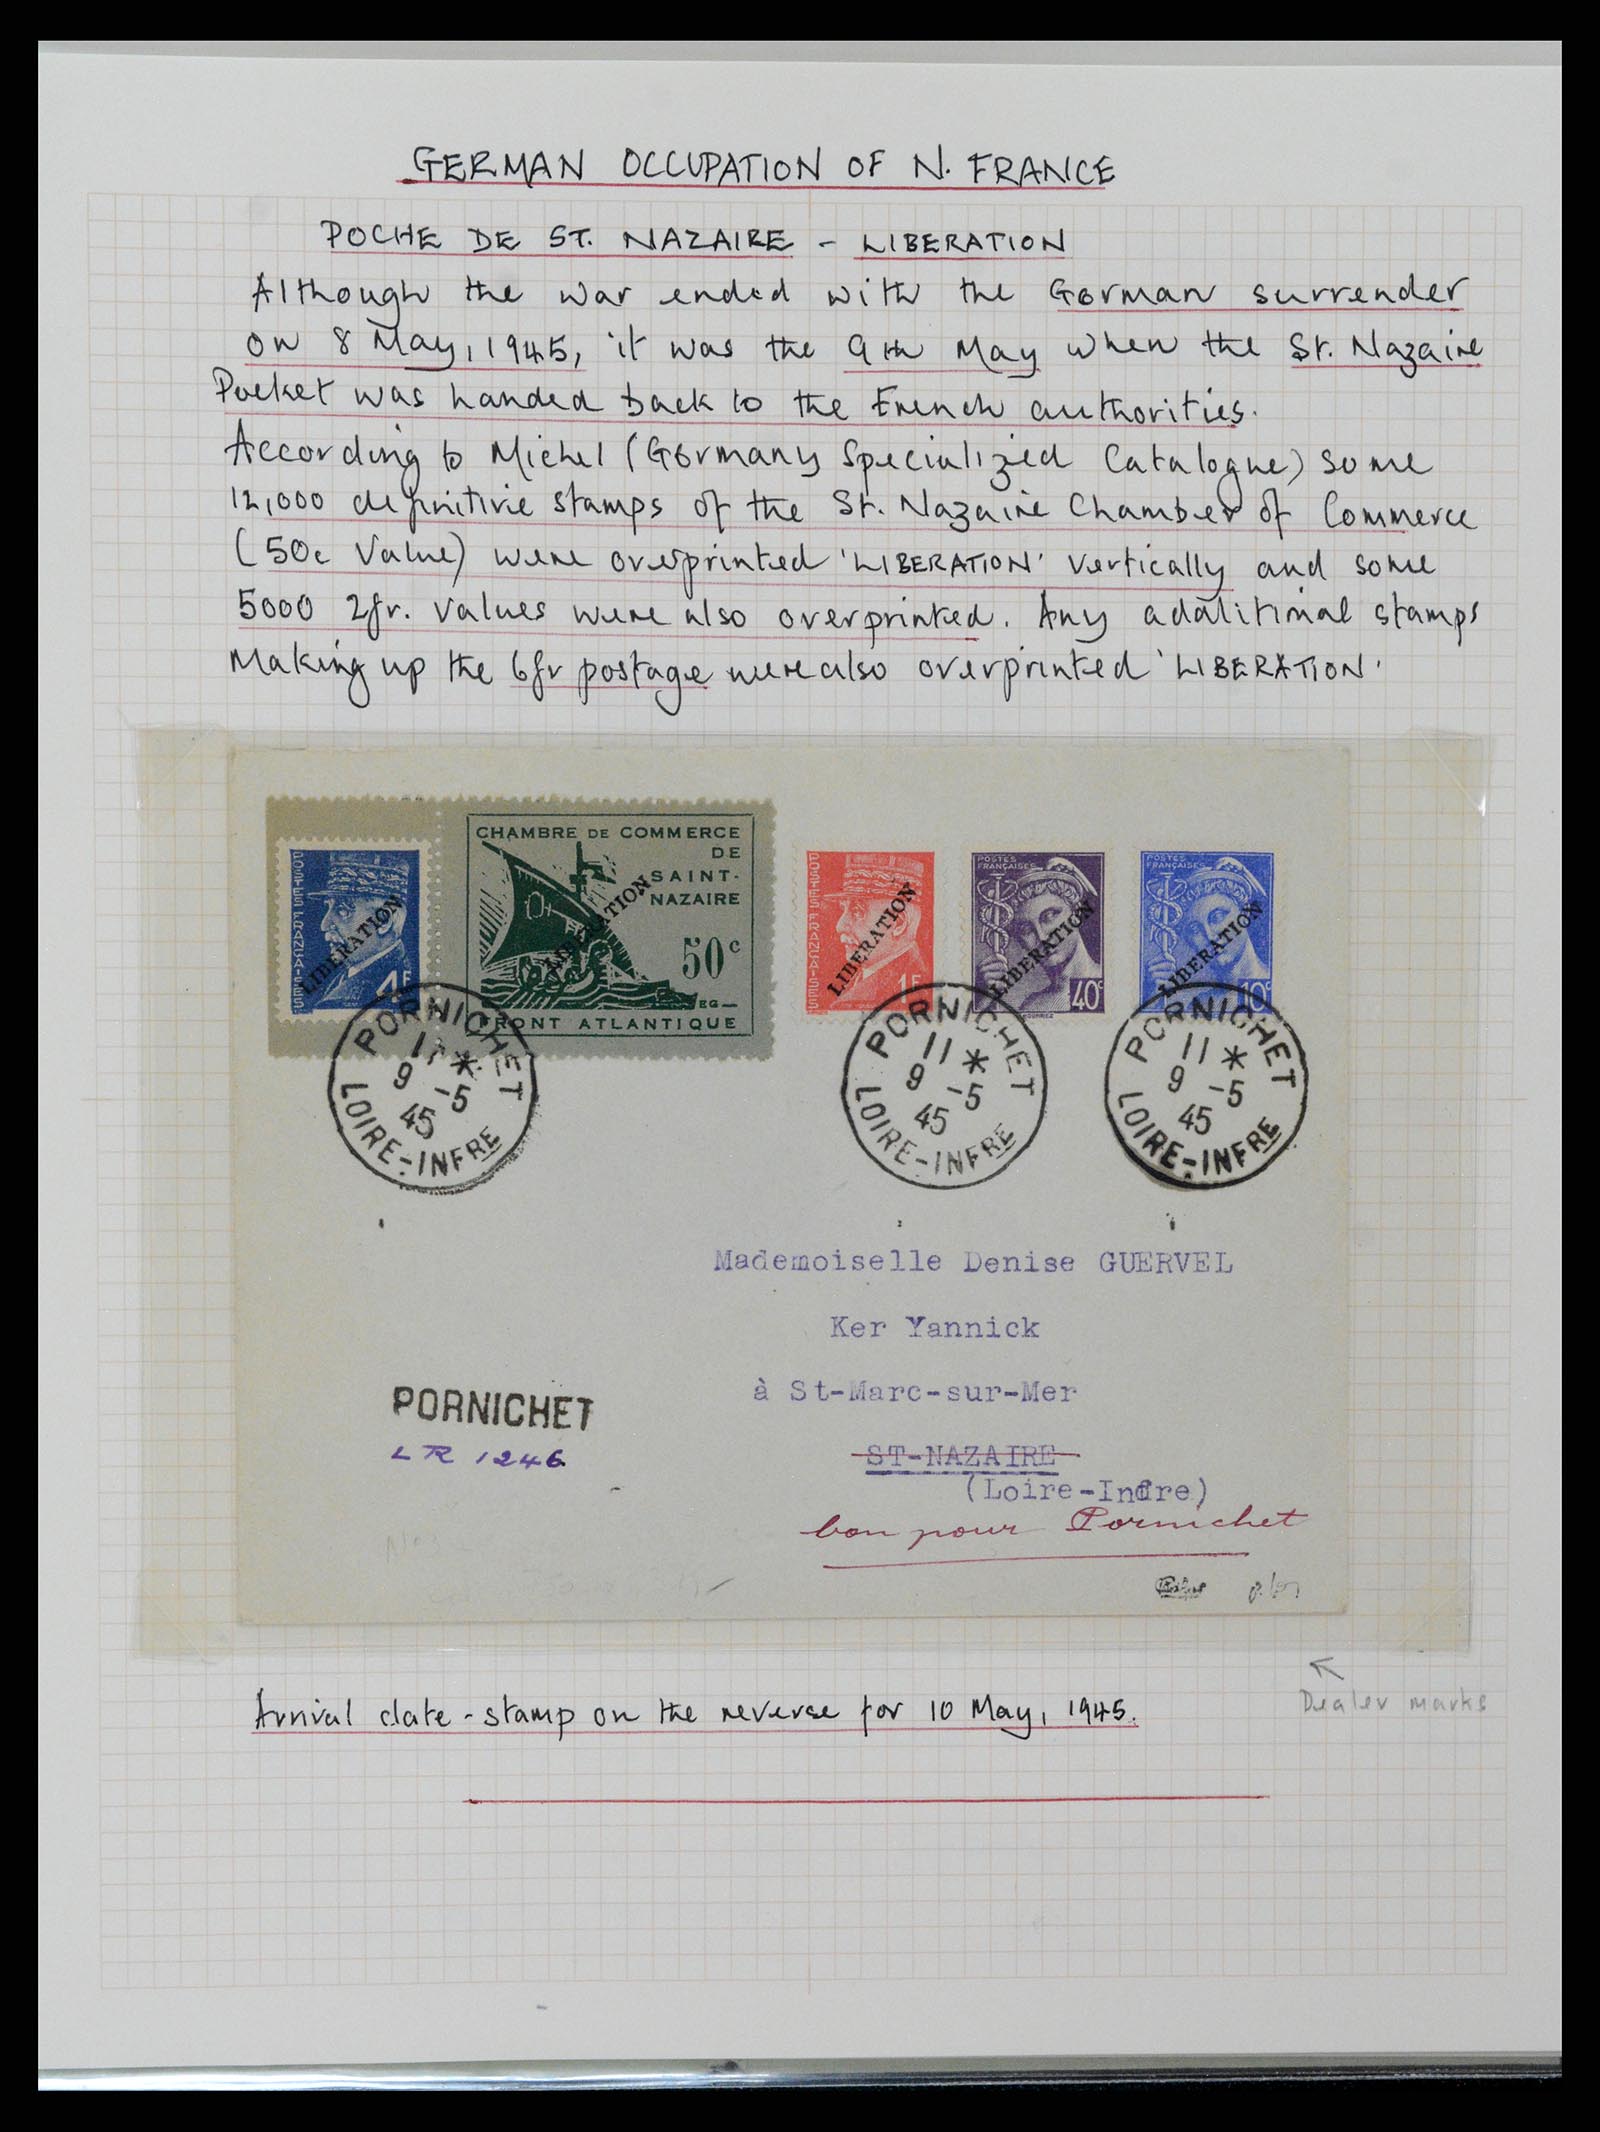 GERMAN OCCUPATION OF N. FRANCE
POCHE DE ST. NAZAIRE - LIBERATION
Although the war ended with the German surrender
on 8 May, 1945, it was the 9th May when the St. Nazaire
Pocket was handed back to the French authorities.
According to Michel (Germany Specialized Catalogue) some
12,000 definitive stamps of the St. Nazaire Chamber of Commerce
(50c Value) were overprinted 'LIBERATION' vertically and some
5000 2fr. values were also overprinted. Any additional stamps
making up the 6fr postage were also overprinted 'LIBERATION'
POSTES FRANÇAISES
4F
LIBERATION
CHAMBRE DE COMMERCE
DE
SAINT-
NAZAIRE
50c
EG
FRONT ATLANTIQUE
LIBERATION
POSTES FRANÇAISES
1F
LIBERATION
POSTES
FRANÇAISES
40c
LIBERATION
POSTES
FRANÇAISES
10c
LIBERATION
PORNICHET
11 *
9 -5
45
LOIRE-INFRE
PORNICHET
11 *
9 -5
45
LOIRE-INFRE
PORNICHET
11 *
9 -5
45
LOIRE-INFRE
Mademoiselle Denise GUERVEL
Ker Yannick
à St-Marc-sur-Mer
ST-NAZAIRE
(Loire-Infre)
bon pour Pornichet
PORNICHET
LR 1246
Dealer marks
Arrival date-stamp on the reverse for 10 May, 1945.